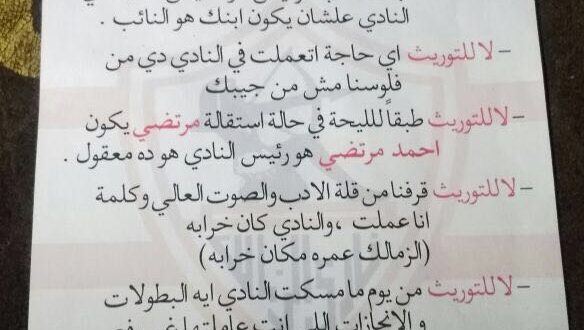 النادي علشان يكون ابنك هو النائب .
- لا للتوريث اي حاجة اتعملت في النادي دي من
فلوسنا مش من جيبك
- لا للتوريث طبقاً لليحة في حالة استقالة مرتضي يكون
احمد مرتضي هو رئيس النادي هو ده معقول .
- لا للتوريث قرفنا من قلة الادب والصوت العالي وكلمة
انا عملت ، والنادي كان خرابه
(الزمالك عمره مكان خرابه)
- لا للتوريث من يوم ما مسكت النادي ايه البطولات
والانجازات اللي انت عاملتها غير